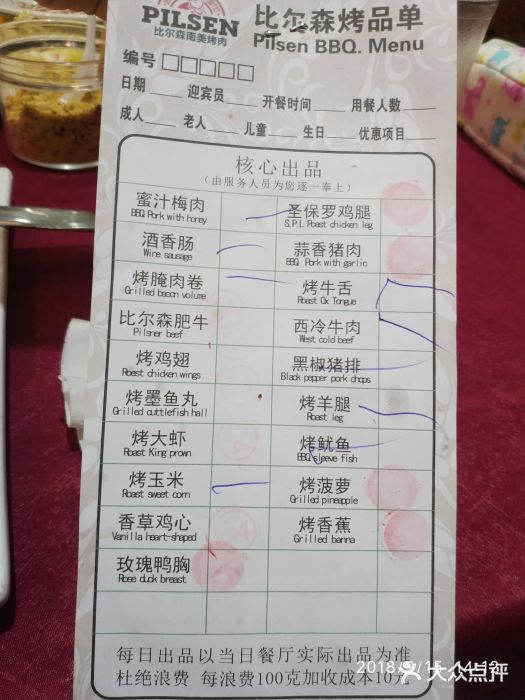 PILSEN
比尔森南美烤肉
比尔森烤品单
Pilsen BBQ. Menu
编号
日期 迎宾员 开餐时间 用餐人数
成人 老人 儿童 生日 优惠项目
核心出品
(由服务人员为您逐一奉上)
蜜汁梅肉 圣保罗鸡腿
BBQ Pork with honey S.P.L Poast chicken leg
酒香肠 蒜香猪肉
Wine sausage BBQ Pork with garlic
烤腌肉卷 烤牛舌
Grilled bacon volume Roast Ox Tongue
比尔森肥牛 西冷牛肉
Pilsner beef West cold beef
烤鸡翅 黑椒猪排
Roest chicken wings Black pepper pork chops
烤墨鱼丸 烤羊腿
Grilled cuttlefish hall Roast leg
烤大虾 烤鱿鱼
Roast King prown BBQ sleeve fish
烤玉米 烤菠萝
Roast sweet corn Grilled pineapple
香草鸡心 烤香蕉
Vanilla heart-shaped Grilled banna
玫瑰鸭胸
Rose duck breast
每日出品以当日餐厅实际出品为准
杜绝浪费 每浪费100克加收成本10元
大众点评